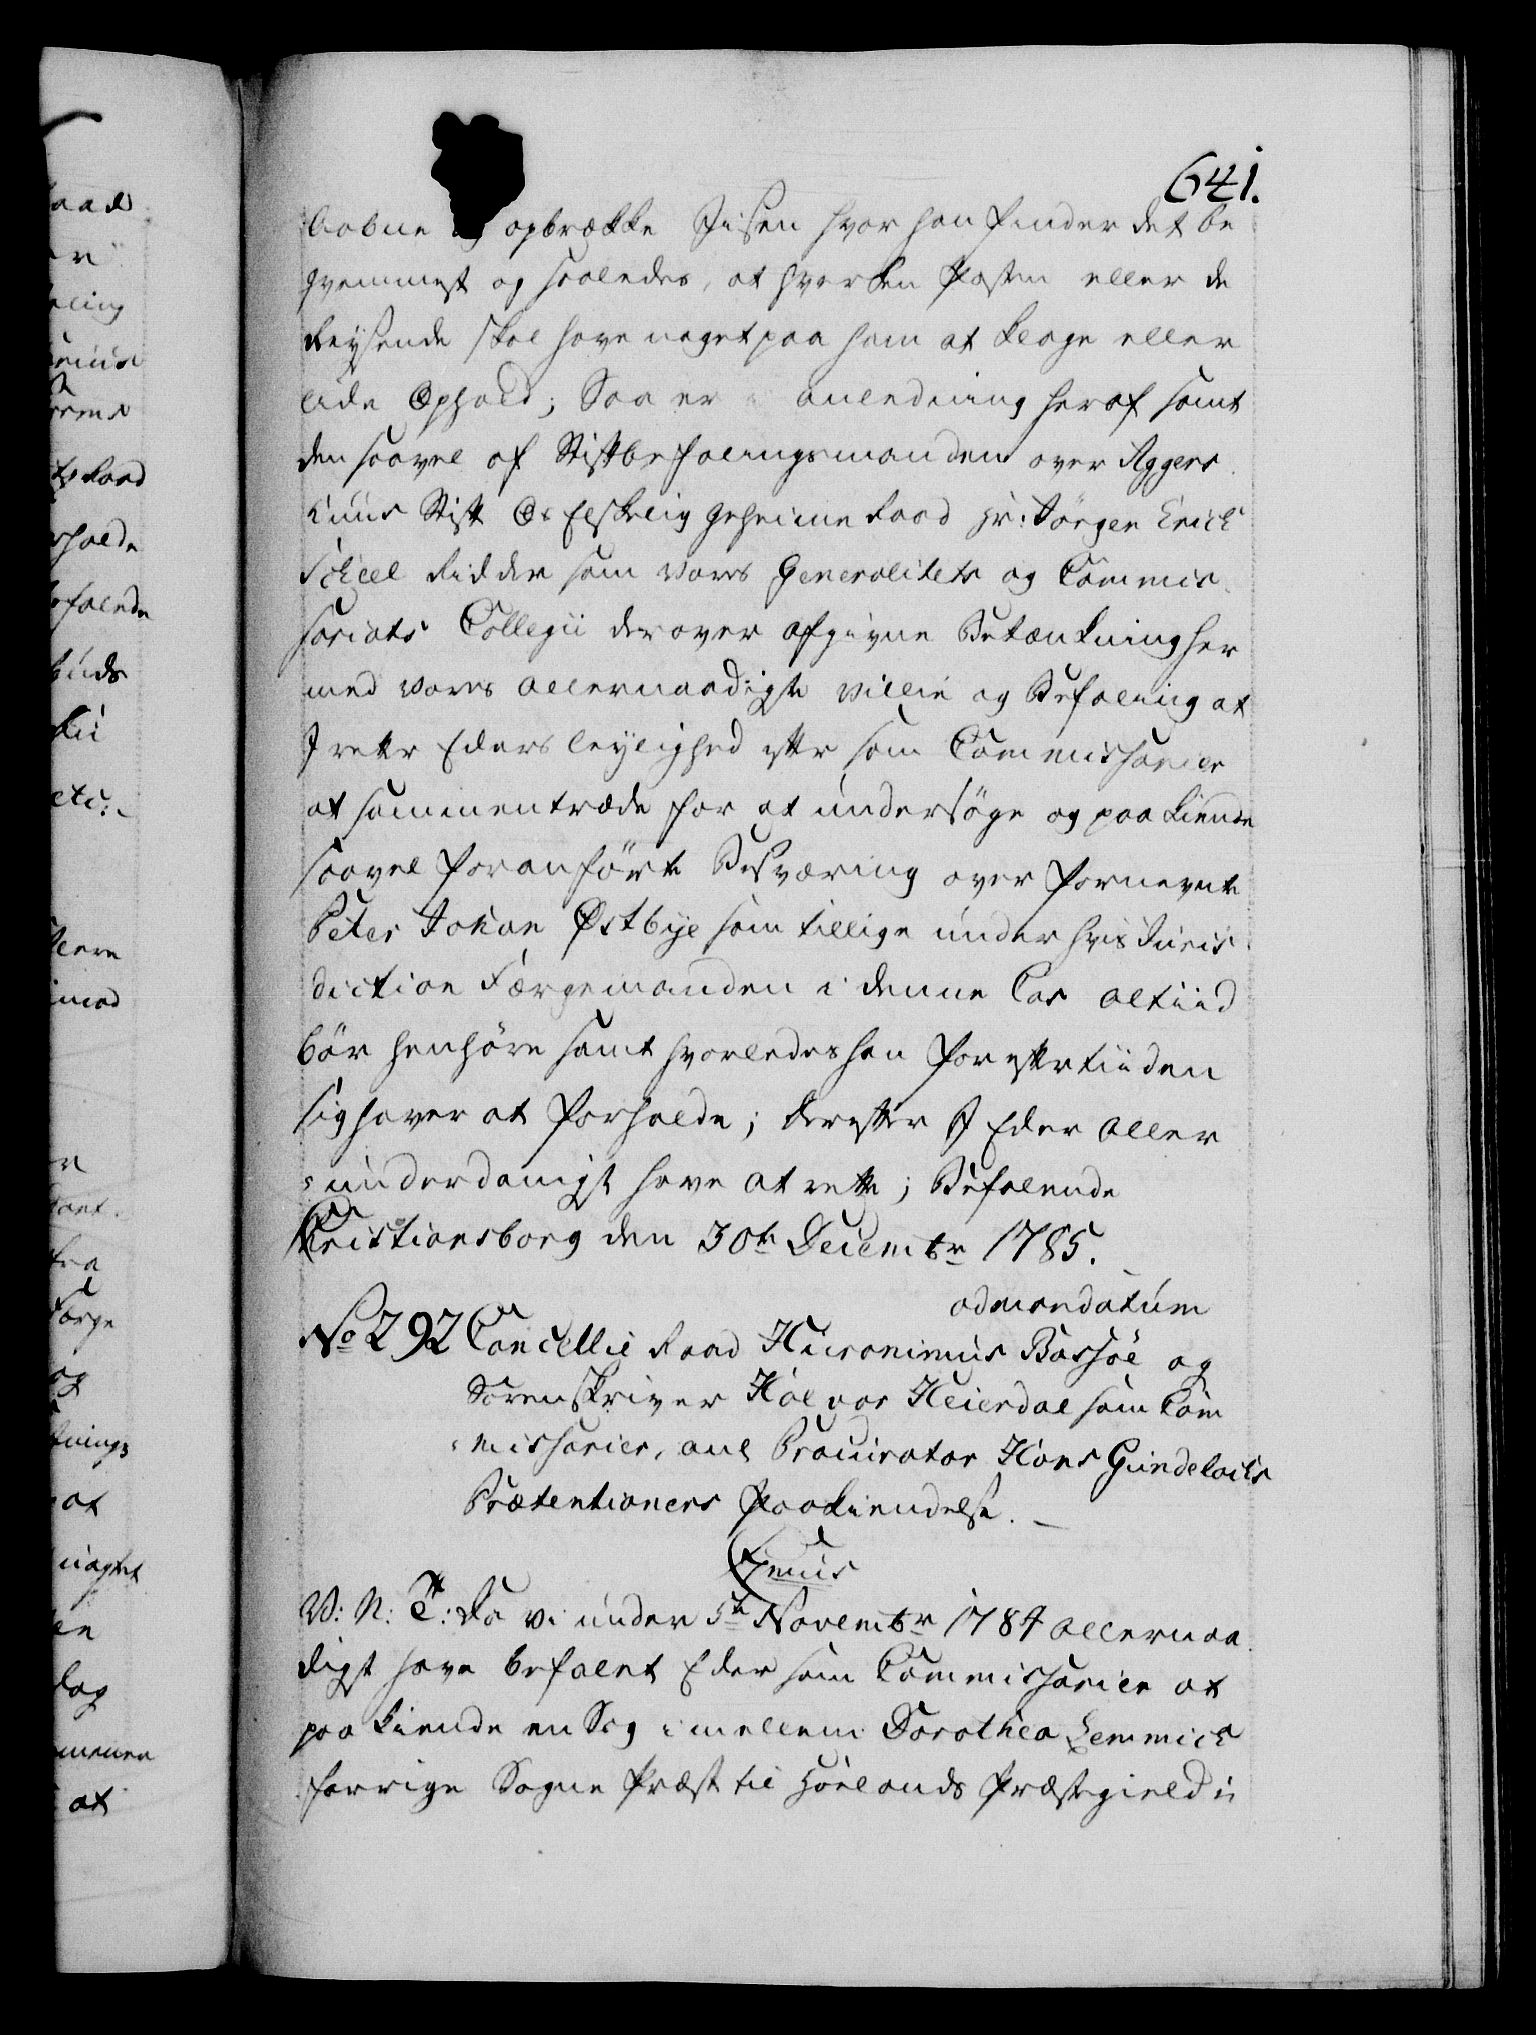 641.
aabne og opbrække Jisen hvor han finder det be
qvemmest og saaledes, at hverken Posten eller de
Reysende skal have noget paa ham at klage eller
lide Ophold; Saa er anledning heraf samt
den saavel af Stiftbefalingsmanden over Agger
huus Stift Os Elskelig Geheime Raad Hr: Jörgen Erich
Scheel Ridder som vores Generalitets og Commis
sariats Collegii derover afgivne Betænkning her
med vores allernaadigste villie og Befaling at
I rette Eders leylighed efter som Commissarier
at sammentræde for at undersöge og paa kiende
saavel foranförte Besværing over fornevnte
Peter Johan Østbye som tillige under hvis Juris
diction Færgemanden i denne Cas altiid
bör henhöre samt hvorledes han for eftertiiden
sig haver at forholde; derefter I Eder aller
underdanigst have at rette; Befalende
Christiansborg den 30te Decembr 1785.
ad mandatum
No 292 Cancellie Raad Hieronimus Bassöe og
Sorenskriver Halvor Heierdal som Com
missarier, anl Procurator Hans Gundelachs
Prætentioners Paakiendelse.
Genus
V: N: T: Da vi under 5te Novembr 1784 allernaa
digst have befalet Eder som Commissarier at
paa kiende en Sag imellem Dorothea Lemmich
forrige Sogne Præst til Hölands Præstegield i